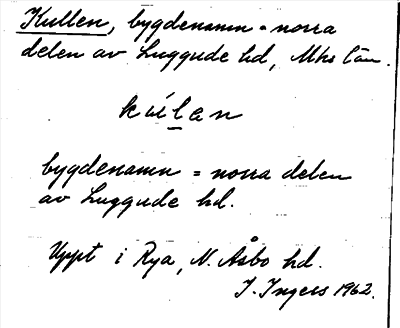 Kullen, bygdenamn = norra
delen av Luggude hd, Mhs län.
kúlan
bygdenamn = norra delen
av Luggude hd.
Uppt i Rya, N. Åsbo hd.
I. Ingers 1962.